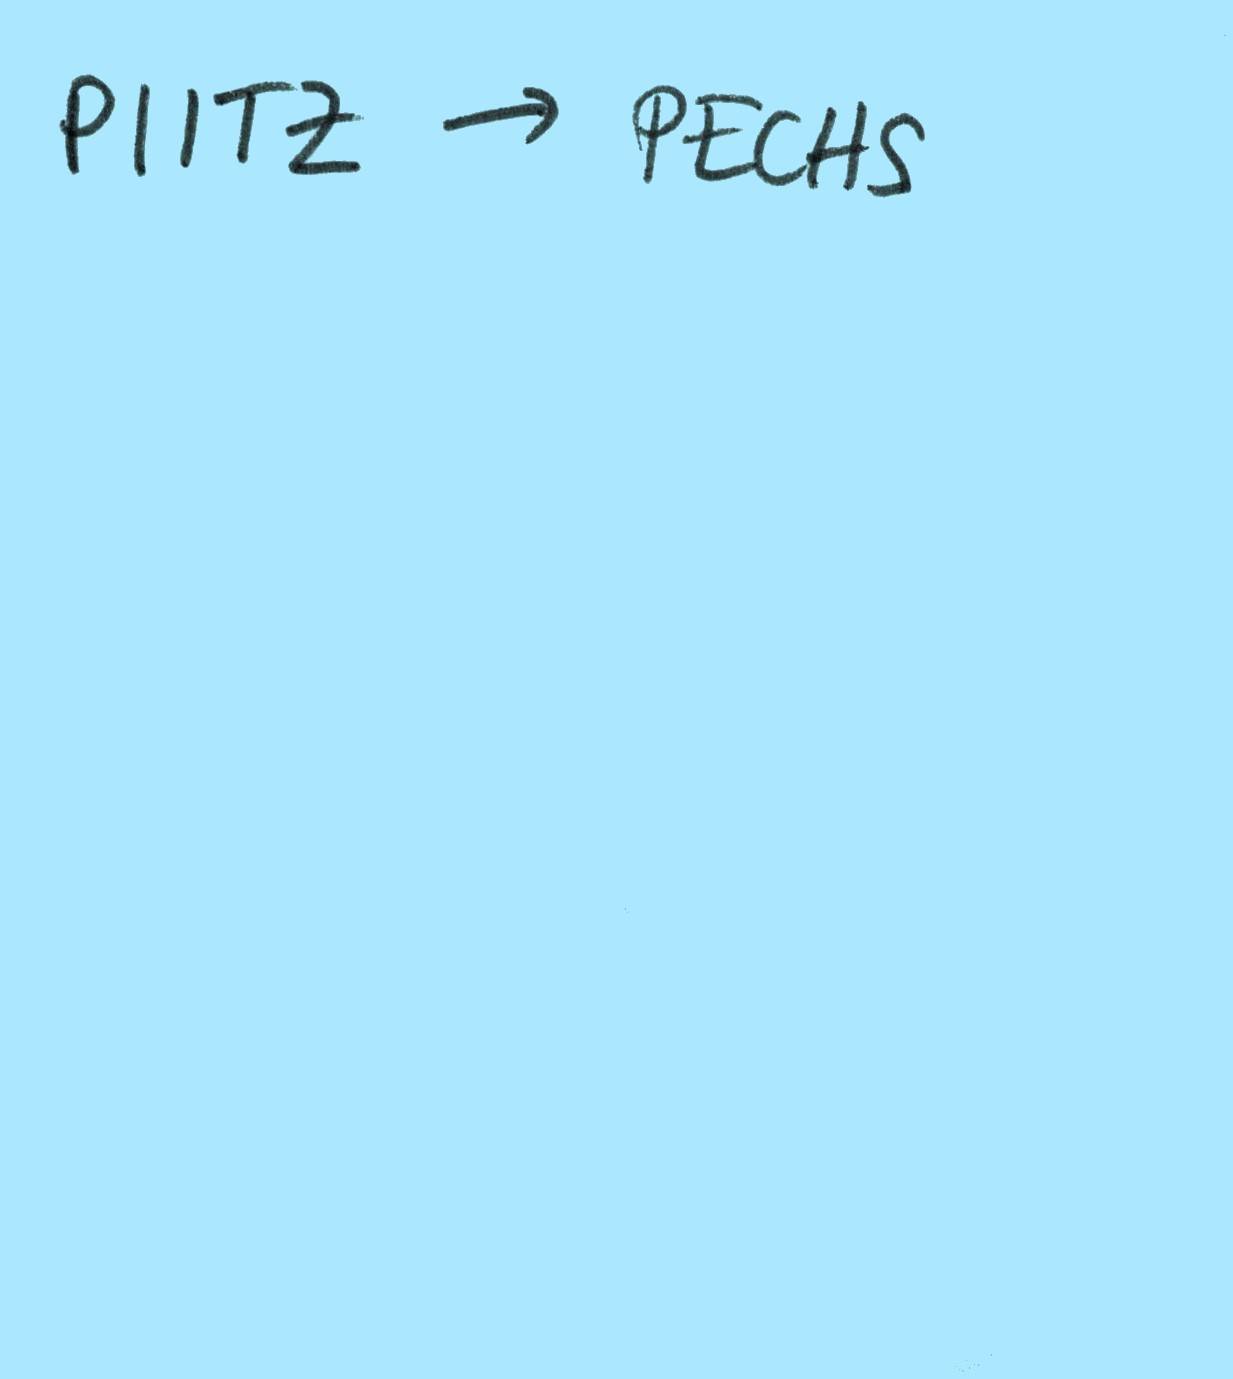 PIITZ → PECHS